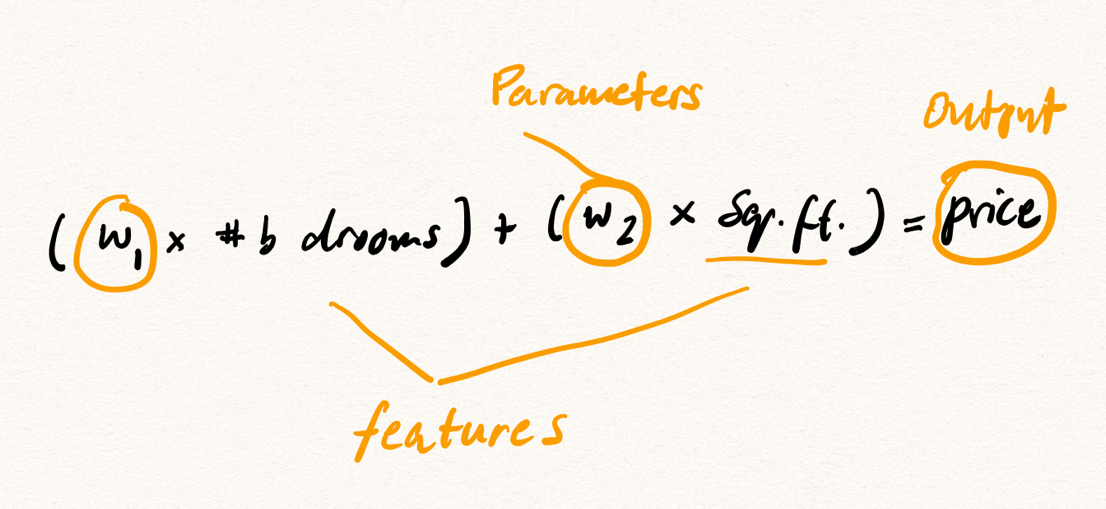 Parameters
Output
(w₁ × # b drooms) + (w₂ × Sq.ft.) = price
features